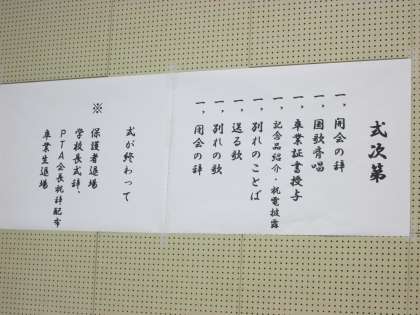 式次第
一、開会の辞
一、国歌斉唱
一、卒業証書授与
一、記念品紹介・祝電披露
一、別れのことば
一、送る歌
一、別れの歌
一、閉会の辞
式が終わって
※ 保護者退場
学校長式辞、
PTA会長祝辞配布
卒業生退場